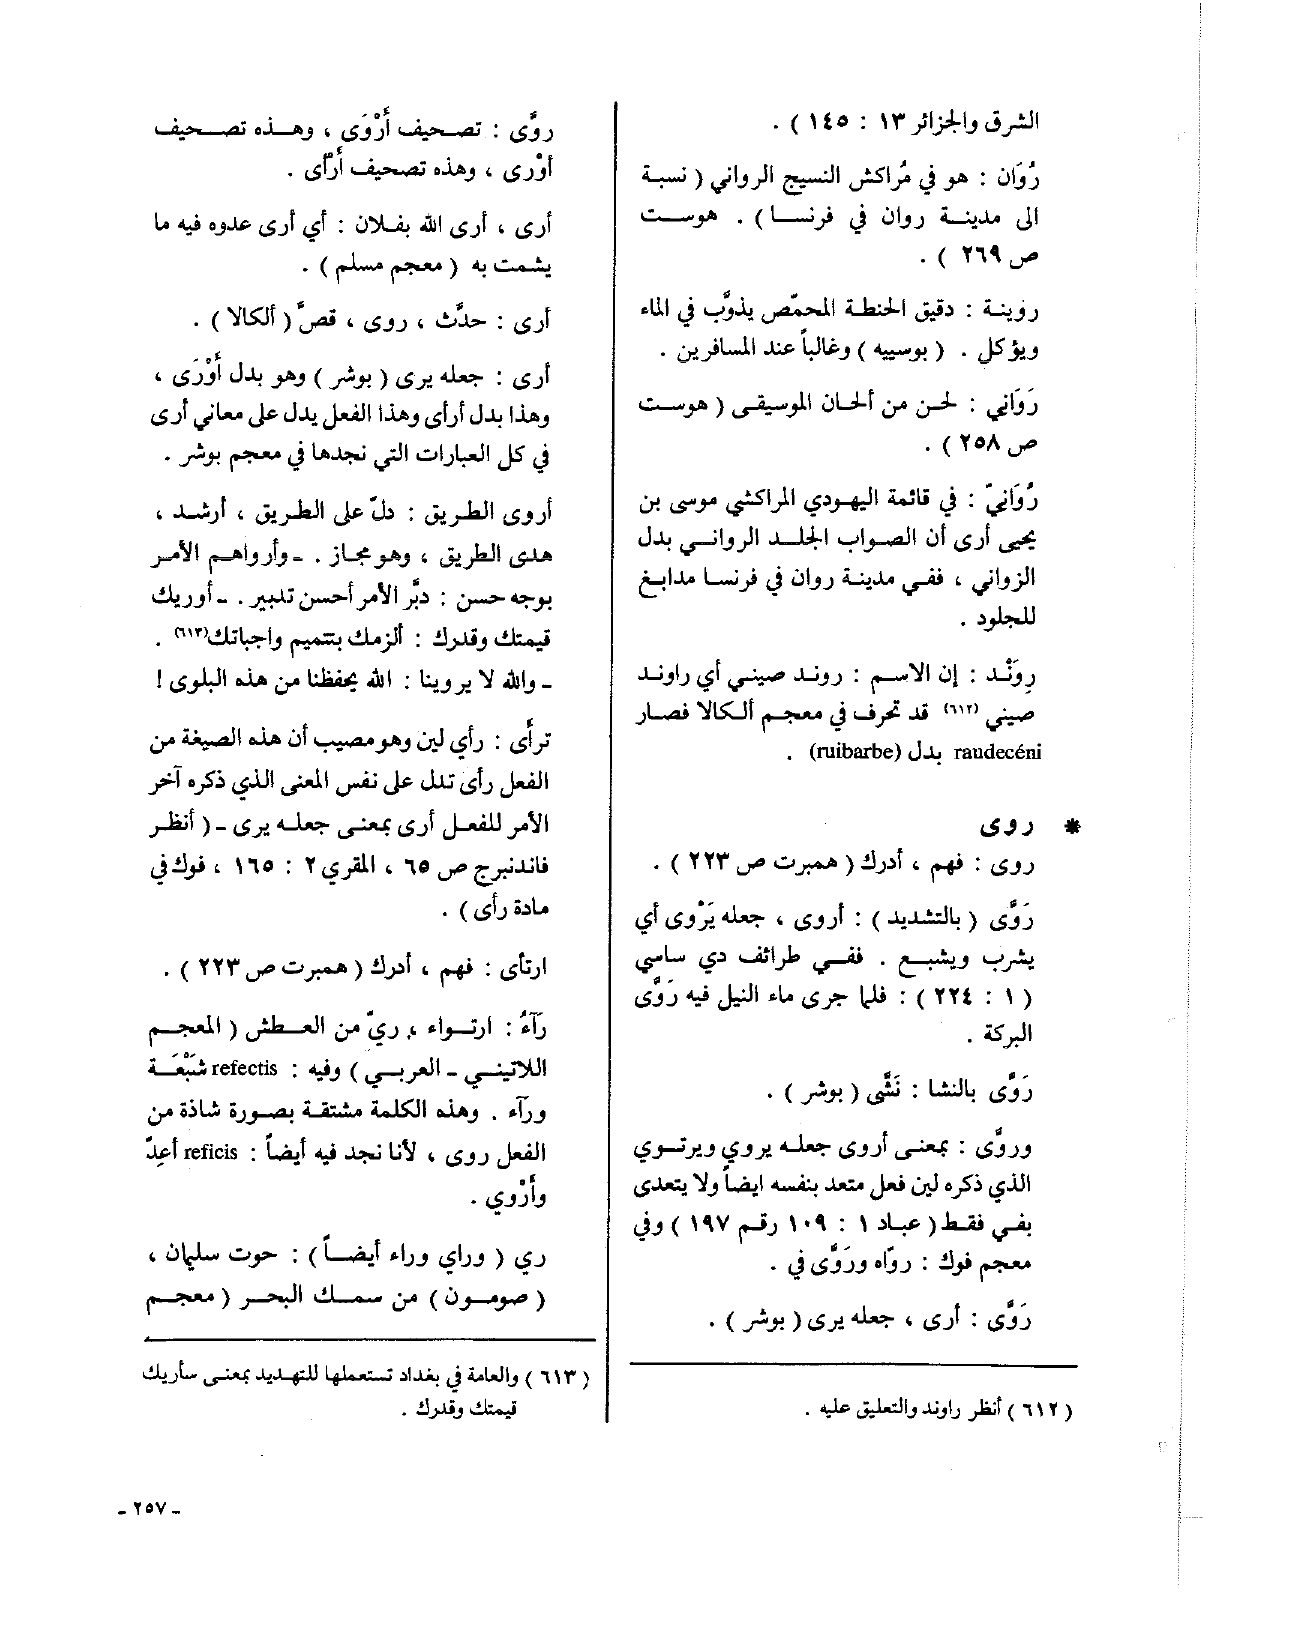 الشرق والجزائر ١٣ : ١٤٥ ) .
رُوَان : هو في مُراكش النسيج الرواني ( نسبة
الى مدينة روان في فرنسا ) . هوست
ص ٢٦٩ ) .
روينة : دقيق الحنطة المحمّص يذوَّب في الماء
ويؤكل . ( بوسييه ) وغالباً عند المسافرين .
رَوَاني : لحن من ألحان الموسيقى ( هوست
ص ٢٥٨ ) .
رُوَانيّ : في قائمة اليهودي المراكشي موسى بن
يحيى أرى أن الصواب الجلد الرواني بدل
الزواني ، ففي مدينة روان في فرنسا مدابغ
للجلود .
رِوَنْد : إن الاسم : روند صيني أي راوند
صيني (٦١٢) قد تحرف في معجم ألكالا فصار
raudecéni بدل (ruibarbe) .
* روى
روى : فهم ، أدرك ( همبرت ص ٢٢٣ ) .
رَوَّى ( بالتشديد ) : أروى ، جعله يَرْوى أي
يشرب ويشبع . ففي طرائف دي ساسي
( ١ : ٢٢٤ ) : فلما جرى ماء النيل فيه رَوَّى
البركة .
رَوَّى بالنشا : نَشَّى ( بوشر ) .
وروَّى : بمعنى أروى جعله يروي ويرتوي
الذي ذكره لين فعل متعد بنفسه ايضاً ولا يتعدى
بفي فقط ( عباد ١ : ١٠٩ رقم ١٩٧ ) وفي
معجم فوك : روّاه ورَوَّى في .
رَوَّى : أرى ، جعله يرى ( بوشر ) .
( ٦١٢ ) أنظر راوند والتعليق عليه .
روَّى : تصحيف أَرْوَى ، وهذه تصحيف
أوْرى ، وهذه تصحيف أرْأى .
أرى ، أرى الله بفلان : أي أرى عدوه فيه ما
يشمت به ( معجم مسلم ) .
أرى : حدَّث ، روى ، قصَّ ( ألكالا ) .
أرى : جعله يرى ( بوشر ) وهو بدل أَوْرَى ،
وهذا بدل أرأى وهذا الفعل يدل على معاني أرى
في كل العبارات التي نجدها في معجم بوشر .
أروى الطريق : دلّ على الطريق ، أرشد ،
هدى الطريق ، وهو مجاز . ـ وأرواهم الأمر
بوجه حسن : دبَّر الأمر أحسن تدبير . ـ أوريك
قيمتك وقدرك : ألزمك بتتميم واجباتك(٦١٣) .
ـ والله لا يروينا : الله يحفظنا من هذه البلوى !
ترأَّى : رأي لين وهو مصيب أن هذه الصيغة من
الفعل رأى تدل على نفس المعنى الذي ذكره آخر
الأمر للفعل أرى بمعنى جعله يرى ـ ( أنظر
فاندنبرج ص ٦٥ ، المقري ٢ : ١٦٥ ، فوك في
مادة رأى ) .
ارتأى : فهم ، أدرك ( همبرت ص ٢٢٣ ) .
رَآءُ : ارتواء ، ريّ من العطش ( المعجم
اللاتيني ـ العربي ) وفيه : refectis شَبْعَة
ورآء . وهذه الكلمة مشتقة بصورة شاذة من
الفعل روى ، لأنا نجد فيه أيضاً : reficis أعِدّ
وأَرْوي .
ري ( وراي وراء أيضاً ) : حوت سليمان ،
( صومون ) من سمك البحر ( معجم
( ٦١٣ ) والعامة في بغداد تستعملها للتهديد بمعنى سأريك
قيمتك وقدرك .
ـ ٢٥٧ ـ